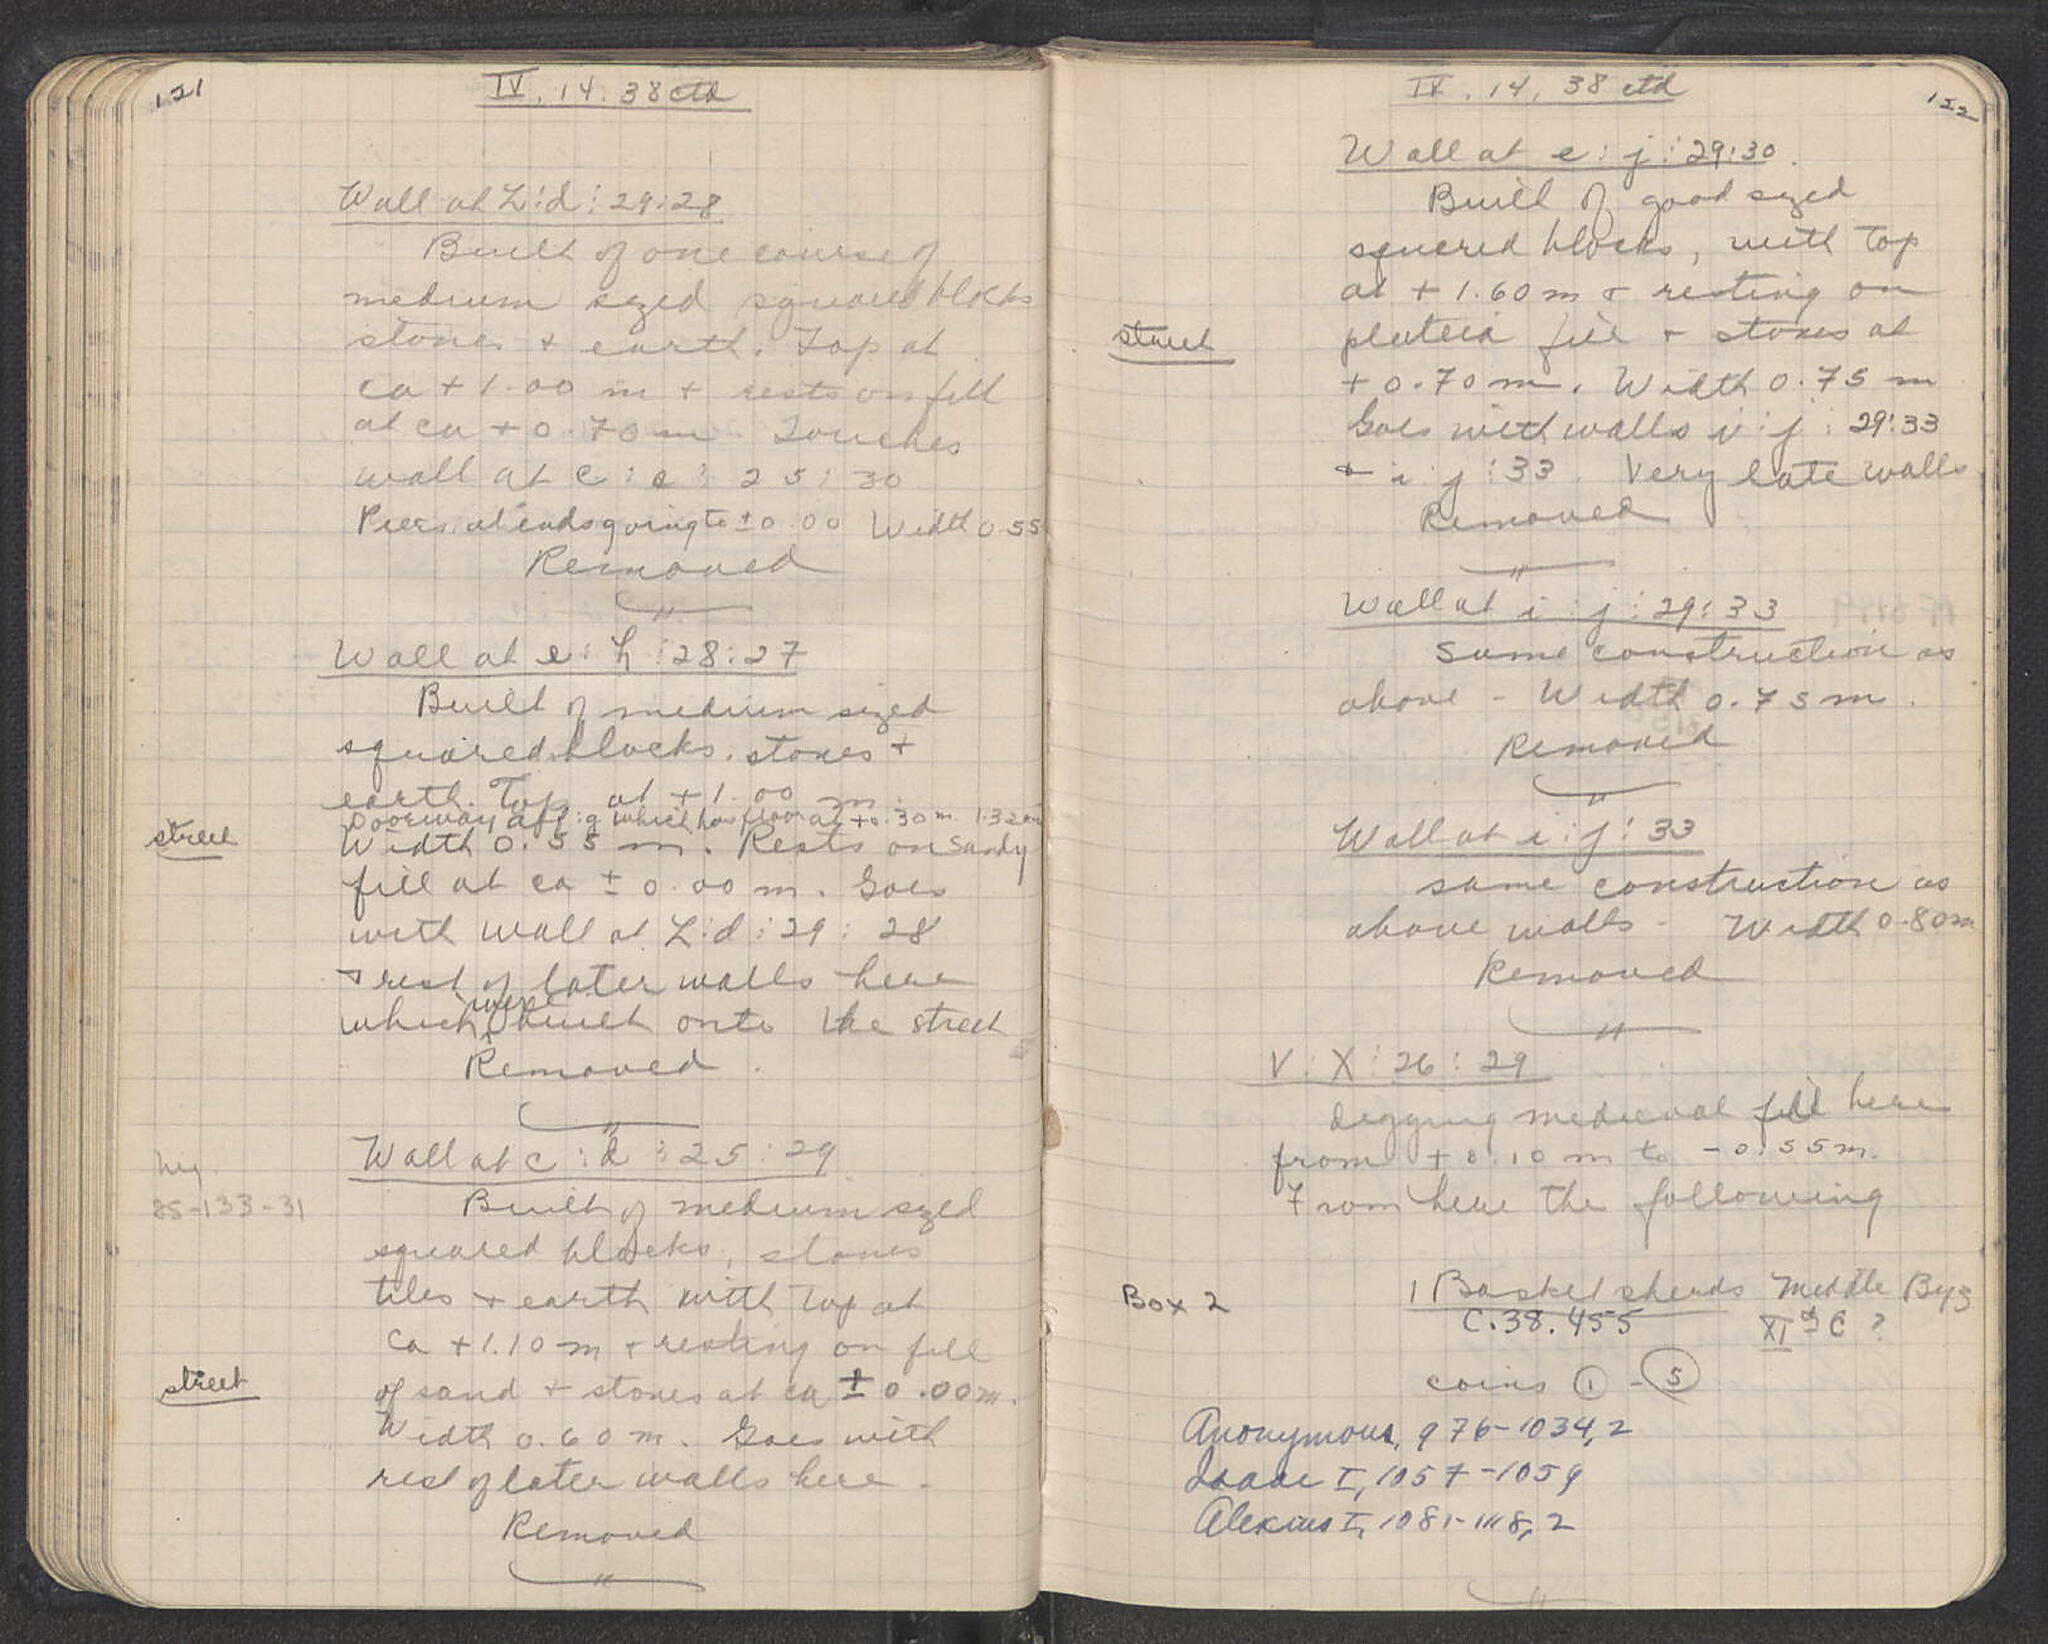 121
IV. 14. 38 ctd
Wall at Z:d:29:28
Built of one course of
medium sized squared blocks
stones + earth. Top at
ca + 1.00 m + rests on fill
at ca + 0.70 m. Touches
wall at c:e:25:30
Piers at ends going to ±0.00 Width 0.55
Removed
Wall at e:h:28:27
Built of medium sized
squared blocks, stones +
earth. Top at +1.00 m.
Doorway at f:g which has floor at +0.30 m 1.32 m
street
Width 0.55 m. Rests on sandy
fill at ca ± 0.00 m. Goes
with wall at Z:d:29:28
+ rest of later walls here
which were built onto the street
Removed.
Wall at c:d:25:29
Neg.
25-133-31
Built of medium sized
squared blocks, stones
tiles + earth with top at
Ca + 1.10 m + resting on fill
of sand + stones at ca ± 0.00 m.
street
Width 0.60 m. Goes with
rest of later walls here -
Removed
122
IV. 14. 38 ctd
Wall at e:j:29:30.
Built of good sized
squared blocks, with top
at + 1.60 m + resting on
street
plateia fill + stones at
+ 0.70 m. Width 0.75 m
Goes with walls i:j:29:33
+ i:j:33. Very late walls
Removed
Wall at i:j:29:33
Same construction as
above - Width 0.75 m.
Removed
Wall at i:j:33
same construction as
above walls - Width 0.80 m
Removed
V:X:26:29
Digging medieval fill here
from + 0.10 m to - 0.55 m.
From here the following
Box 2
1 Basket sherds Middle Byz
C.38.455 XIth C ?
coins 1 - 5
Anonymous, 976-1034, 2
Isaac I, 1057-1059
Alexius I, 1081-1118, 2